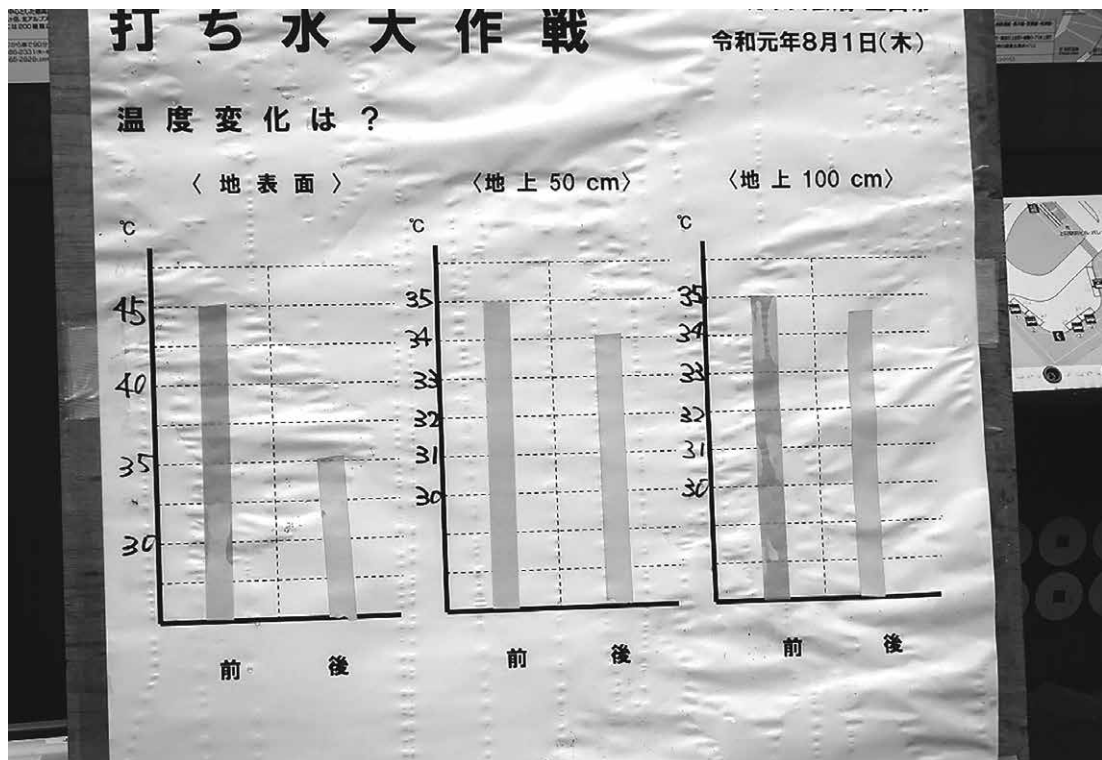 打ち水大作戦
令和元年8月1日(木)
温度変化は?
〈地表面〉
℃
45
40
35
30
前
後
〈地上 50 cm〉
℃
35
34
33
32
31
30
前
後
〈地上 100 cm〉
℃
35
34
33
32
31
30
前
後